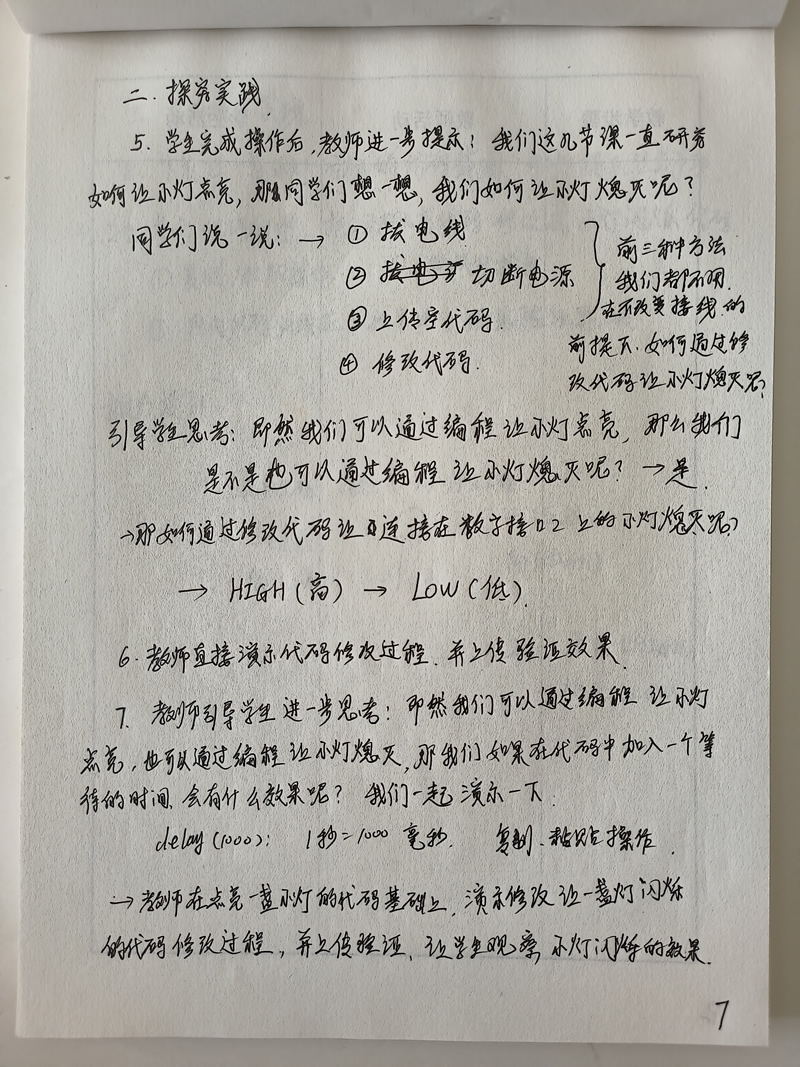 二.探究实践
5. 学生完成操作后,教师进一步提示:我们这几节课一直研究
如何让小灯点亮,那同学们想一想,我们如何让小灯熄灭呢?
同学们说一说: → ① 拔电线
② 切断电源
③ 上传空代码.
④ 修改代码.
前三种方法
我们都不用.
在不改变接线的
前提下.如何通过修
改代码让小灯熄灭呢?
引导学生思考:即然我们可以通过编程让小灯点亮,那么我们
是不是也可以通过编程让小灯熄灭呢? → 是.
→那如何通过修改代码让连接在数字接口2上的小灯熄灭呢?
→ HIGH(高) → LOW(低).
6. 教师直接演示代码修改过程.并上传验证效果.
7. 教师引导学生进一步思考:即然我们可以通过编程让小灯
点亮,也可以通过编程让小灯熄灭,那我们如果在代码中加入一个等
待的时间、会有什么效果呢? 我们一起演示一下.
delay(1000); 1秒=1000毫秒. 复制、粘贴操作.
→教师在点亮一盏小灯的代码基础上,演示修改让一盏灯闪烁
的代码修改过程,并上传验证、让学生观察小灯闪烁的效果.
7